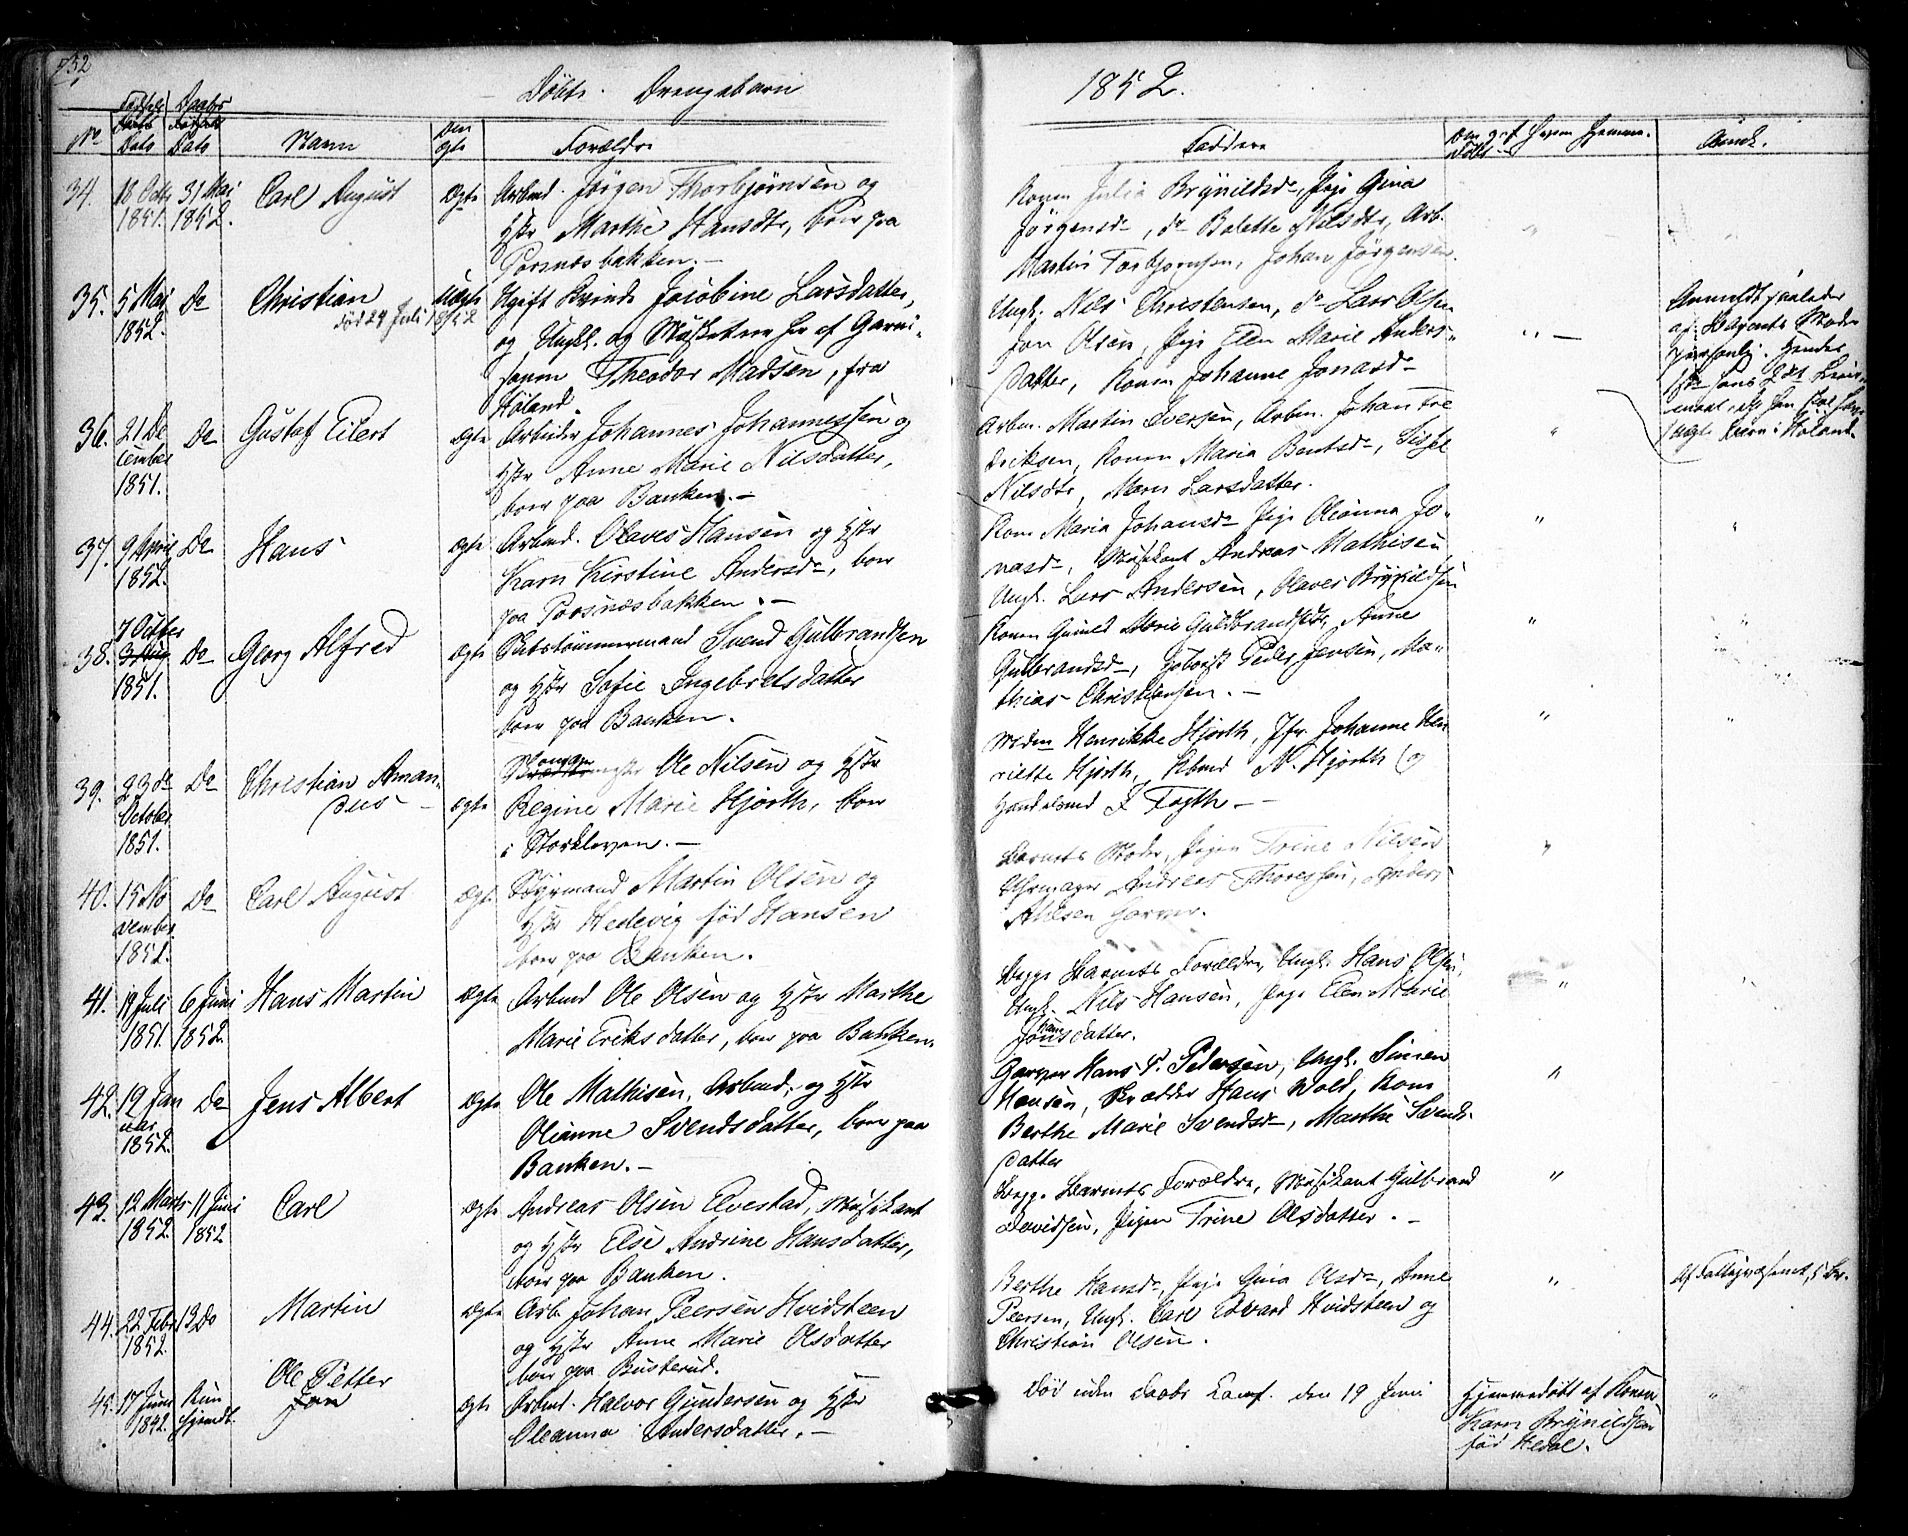 Døbte Drengebørn
1852.
No
Dato
Dato
Navn
Forældre
Faddere
Anmk.
34.
18 Octb 1851.
31 Mai 1852.
Carl August
Ægte
Arbmd. Jørgen Thorbjørnsen og
Hstr Marthe Hansdtr, boer paa
Porsnæsbakken.-
Konen Julia Brynildsd, Pige Gina
Jørgensd, do Balette Nilsdtr, Arb.
Martin Torbjørnsen, Johan Jørgensen.
35.
5 Mai 1852.
Do
Christian
død 24 Juli 1852
Uægte
Ugift Kvinde Jacobine Larsdatter,
og Ungk. og Musketeer af Garni-
sonen Theodor Madsen, fra
Høland.
Ungk. Nils Christensen, do Lars Olsen
Jon Olsen, Pige Elen Marie Anders-
datter, Konen Johanne Jonasd
36.
21 De
cember
1851.
Do
Gustaf Eilert
Ægte
Arbeider Johannes Johannessen og
Hstr Anne Marie Nilsdatter,
boer paa Banken.-
Arbm. Martin Iversen, Arbm. Johan Fre
driksen, Konen Maria Bentsd,
Nilsdtr, Maren Larsdatter.
37.
9 April 1852.
Do
Hans
Ægte
Arbmd. Olaves Hansen og Hstr
Karn Kirstine Andersd, boer
paa Porsnæsbakken.-
Kone Maria Johansd Pige Oleanna Jo-
nasd, Musikant Andreas Mathisen
Ungk. Lars Andersen, Olaves Brynildsen
38.
7 Octber
3 Aug
1851.
Do
Georg Alfred
Ægte
Svend Gulbrandsen
og Hstr Sofie Ingebretsdatter
boer paa Banken.
Konen Gunild Marie Guldbrandsdtr, Anne
Gulbrandsd, Peder Jensen, Ma-
thias Christiansen.-
39.
23de
October
1851.
Do
Christian Aman-
dus
Ægte
Ole Nilsen og Hstr
Regine Marie Hjorth, boer
i Storkleven.-
Mdm Henrikke Hjorth, Jfr Johanne Hen
riette Hjorth, N. Hjorth og
Handelsmd J Fogth-
40.
15 No
vember
1852.
Do
Carl August
Ægte
Styrmand Martin Olsen og
Hstr Hedevig fød Hansen
boer paa Banken.
Barnets Moder, Pigen Trine Nilsen
Uhrmager Andreas Thoresen, Anders
Nilsen Garver.
41.
19 Juli 1851.
6 Juni 1852.
Hans Martin
Ægte
Arbmd Ole Olsen og Hstr Marthe
Marie Eriksdatter, boer paa Banken.
Begge Barnets Forældre, Ungk. Hans Olsen,
Ungk. Nils Hansen, Pige Elen Marie
Jonsdatter.
42.
12 Jan
uar
1852.
Do
Jens Albert
Ægte
Ole Mathisen, Arbmd, og Hstr
Olianne Svendsdatter, boer paa
Banken.-
Garver Hans P. Pedersen, Ungk. Simen
Hansen, Skrædder Hans Wold, Kone
Berthe Marie Svendsd, Marthe Svends-
datter
43.
12 Marts 1852.
11 Juni 1852
Carl
Ægte
Andreas Olsen Elvestad, Musikant
og Hstr Else Andrine Hansdatter,
boer paa Banken.
Begge Barnets Forældre, Musikant Gulbrand
Davidsen, Pigen Trine Olsdatter.-
44.
22 Febr 1852.
12 Do
Martin
Ægte
Arb. Johan Peersen Hvidsteen
og Hstr Anne Marie Olsdatter
boer paa Busterud.
Berthe Hansd, Pige Gina Olsd, Anne
Peersen, Ungk. Carl Edvard Hvidsteen og
Christian Olsen.
Af Fattigvæsenet,
45.
17 Juni
1842.
Kun
hjemdt.
Ole Petter
Jon
Ægte
Arbmd. Halvor Gundersen og Hstr
Oleanna Andersdatter.-
Død uden Daabs Conf. den 19 Juni
Hjemmedøbt af Konen
Karn Brynildsen
fød Hedal.